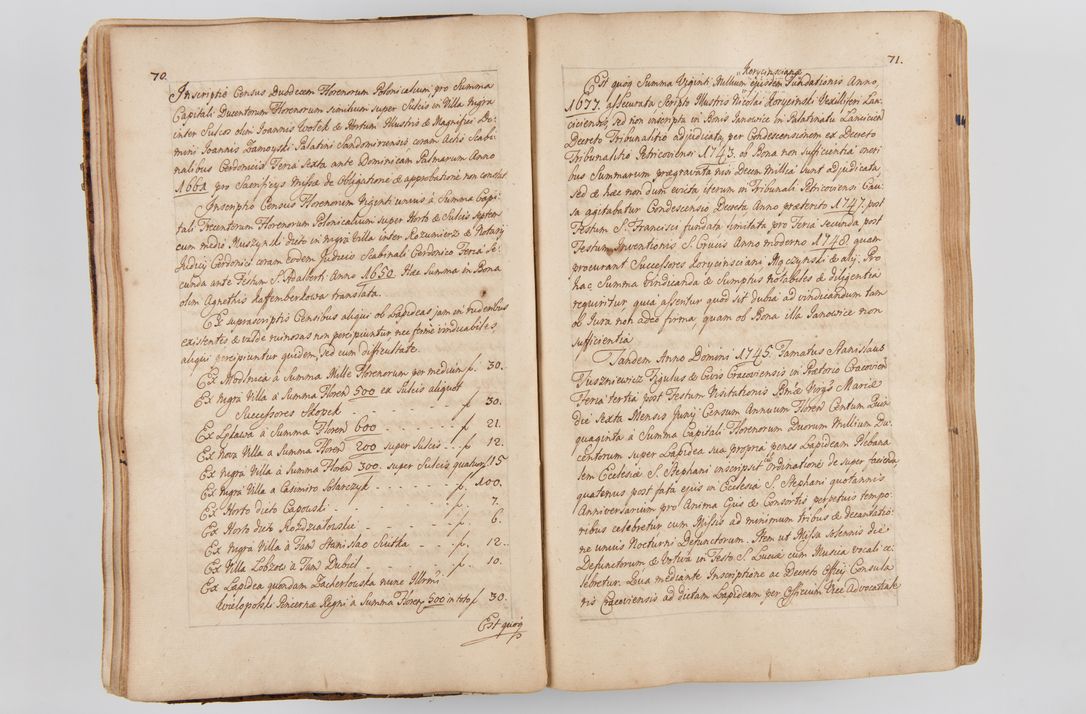 70.
Inscriptio Census Duodecem Florenorum Polonicalium, pro Summa
Capitali Ducentorum Florenorum similium super Sulcis in Villa Nigra
inter Sulcos olim Joannis Wotek & Hortum Illustris & Magnifici Do-
mini Joannis Zamoyski Palatini Sandomiriensis, coram Actis Scabi-
nalibus Cerdonicis Feria Sexta ante Dominicam Palmarum Anno
1661. pro Sacrificijs Missæ de Obligatione & approbatione non constat.
Inscriptio Census Florenorum Viginti unius à Summa Capi-
tali Trecentorum Florenorum Polonicalium super Horto & Sulcis septem
cum medio Muszynski dicto in nigra Villa inter Kazimierz & Notarij
Judicij Cerdonici coram eodem Judicio Scabinali Cerdonico Feria Se-
cunda ante Festum S. Adalberti Anno 1650. Hæc Summa in Bona
olim Agnethis Kaffemberkowa translata.
Ex suprascriptis Censibus aliqui ob Lapideas jam in ruderibus
existentes & valde ruinosas non percipiuntur nec forme irradicabiles,
aliqui percipiuntur quidem, sed cum difficultate.
Ex Modlnica à Summa Mille Florenorum per medium f. 30.
Ex nigra Villa à Summa Floren 500 ex Sulcis aliquot
Successores Skopek - - - - - f. 30.
Ex Lptawa à Summa Floren 600 - - - - f. 21.
Ex nova Villa a Summa Floren 200 super Sulcis - f. 12.
Ex nigra Villa à Summa Floren 300. super Sulcis quatuor f 15
Ex Nigra Villa a Casimiro Solarczyk - - - - f. 100.
Ex Horto dicto Capowski - - - - - f. 7.
Ex Horto dicto Rozdziatowskie - - - - f. 6.
Ex nigra Villa à Fam Stanislao Siutka - - f. 12.
Ex Villa Lobzow à Fam Dubiel - - - - f. 10.
Ex Lapidea quondam Zacherlowska nunc Illrmi
Wielopolski Pincernæ Regni à Summa Floren 500 in toto f. 30.
Est quoq
71.
Korycinsciana
Est quoq Summa Viginti Millium ejusdem Fundationis Anno
1677. assecurata Scripto Illustris Nicolai Korycinski Vexilliferi Lan-
ciciensis, sed non inscripta in Bonis Janowice in Palatinatu Lanciciensi
Decreto Tribunalitio adjudicata, per Condescensionem ex Decreto
Tribunalitio Petricoviensi 1743. ob Bona non sufficientia oneri-
bus Summarum prægravata nisi Decem Millia sunt adjudicata,
sed & hæc non dum evicta iterum in Tribunali Petricoviensi Cau-
sa agitabatur Condescensio, Decreta Anno præterito 1747. post
Festum S. Francisci fundata limitata pro Feria secunda post
Festum Inventionis S. Crucis Anno moderno 1748. quam
procurant Successores Korycinsciani Męczynski & alij. Pro
hac Summa Vindicanda & Sumptus notabiles & diligentia
requiritur, quia asseritur quod sit dubia ad vindicandum tam
ob Jura non adeo firma, quam ob Bona illa Janowice non
sufficientia
Tandem Anno Domini 1745. Famatus Stanislaus
Tuszniewicz Figulus & Civis Cracoviensis in Prætorio Cracovien
Feria tertia post Festum Visitationis Bmæ Virgis Mariæ
die Sexta Mensis Junij Censum Annuum Floren Centum Quin-
quaginta à Summa Capitali Florenorum Duorum Millium Du-
centorum super Lapidea sua propria penes Lapideam Pleba-
lem Ecclesiæ S. Stephani inscripsit ex Ordinatione de super facienda,
quatenus post fata ejus in Ecclesia S. Stephani quotannis
Anniversarium pro Anima Ejus & Consortis perpetuis tempo-
ribus celebretur cum Missis ad minimum tribus & decantatio-
ne unius Nocturni Defunctorum. Item ut Missa solennis die
Defunctorum & Votiva in Festo S. Lucæ cum Musica vocali ce-
lebretur. Qua mediante Inscriptione ac Decreto Officij Consula-
ris Cracoviensis ad dictam Lapideam per Officium Vice Advocatiale